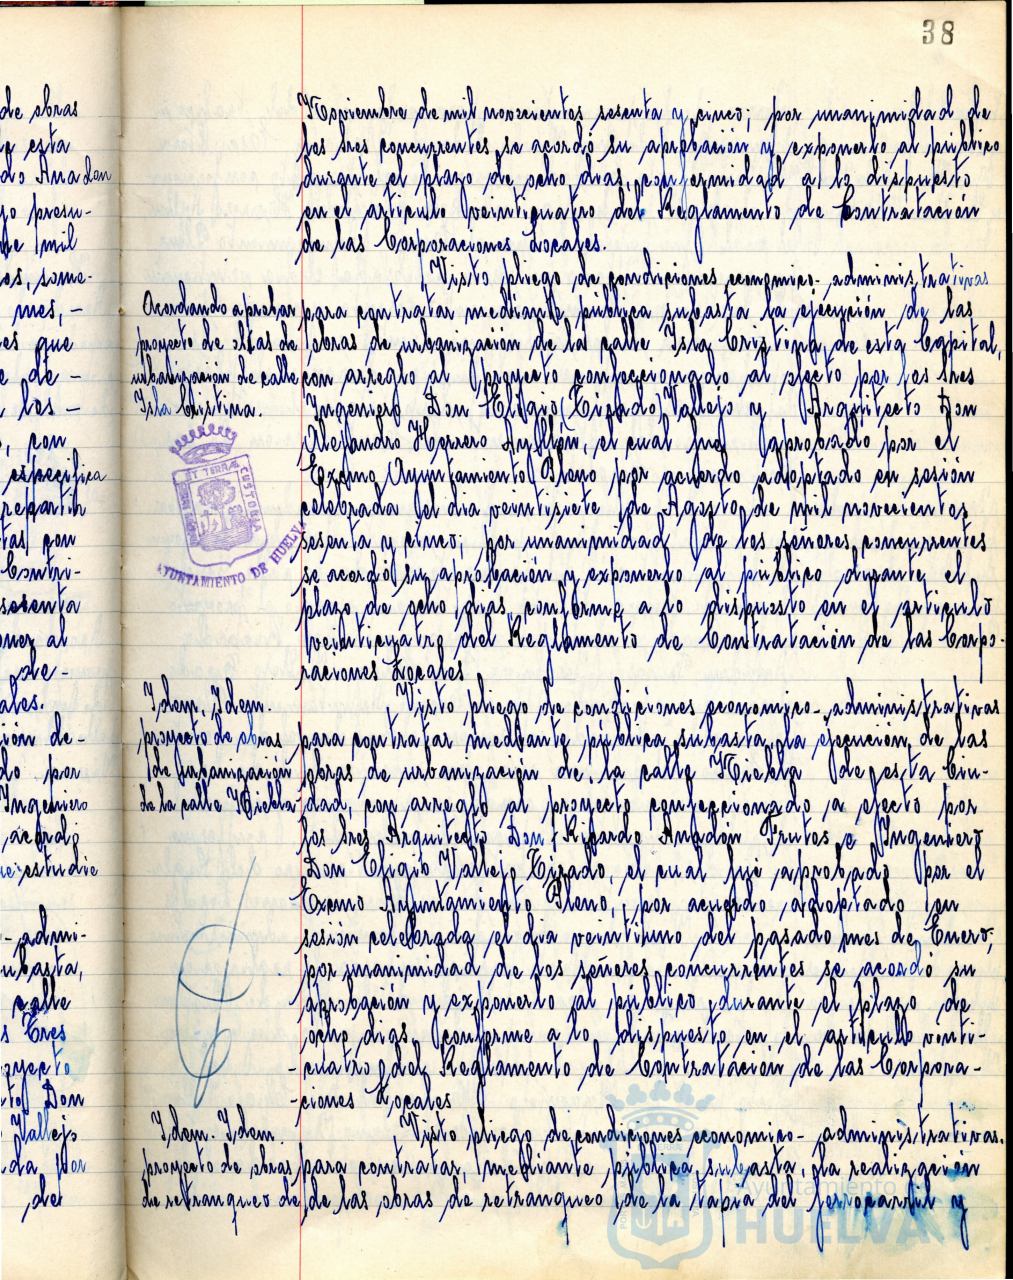 38
de obras
esta
do Anadon
presu-
de mil
os, some-
mes, -
es que
de -
los -
, con
especifica
repartir
tas, con
Contri-
sesenta
oner al
de -
ales.
ión de-
do por
Ingeniero
acordó
estudie
- admi-
ubasta,
calle
s Tres
oyecto
to Don
Vallejo
da, por
de
Noviembre de mil novecientos sesenta y cinco; por unanimidad de
los Sres concurrentes se acordó su aprobación y exponerlo al público
durante el plazo de ocho dias, conformidad a lo dispuesto
en el articulo veinticuatro del Reglamento de Contratación
de las Corporaciones Locales.
Acordando aprobar
proyecto de obras de
urbanización de calle
Isla Cristina.
Visto pliego de condiciones economico-administrativas
para contratar mediante pública subasta la ejecución de las
obras de urbanización de la calle Isla Cristina de esta Capital,
con arreglo al proyecto confeccionado al efecto por los Sres
Ingeniero Don Eligio (Tirado) Vallejo y Arquitecto Don
Alejandro Herrero Ayllón, el cual fué aprobado por el
Excmo Ayuntamiento Pleno por acuerdo adoptado en sesión
celebrada el dia veintisiete de Agosto de mil novecientos
sesenta y cinco; por unanimidad de los señores concurrentes
se acordó su aprobación y exponerlo al público durante el
plazo de ocho dias, conforme a lo dispuesto en el articulo
veinticuatro del Reglamento de Contratación de las Corpo-
raciones Locales
ET TERRÆ CUSTODIA
AYUNTAMIENTO DE HUELVA
Idem, Idem.
proyecto de obras
de urbanización
de la calle Niebla
Visto pliego de condiciones economico-administrativas
para contratar mediante pública subasta, la ejecución de las
obras de urbanización de la calle Niebla de esta Ciu-
dad, con arreglo al proyecto confeccionado a efecto por
los Sres Arquitecto Don Ricardo Anadón Frutos e Ingeniero
Don Eligio Vallejo Tirado, el cual fué aprobado por el
Excmo Ayuntamiento Pleno, por acuerdo adoptado en
sesión celebrada el dia veintiuno del pasado mes de Enero;
por unanimidad de los señores concurrentes se acordó su
aprobación y exponerlo al público, durante el plazo de
ocho dias, conforme a lo dispuesto en el articulo venti-
cuatro del Reglamento de Contratación de las Corpora-
ciones Locales
Idem. Idem.
proyecto de obras
de retranqueo de
Visto pliego de condiciones economico-administrativas.
para contratar, mediante pública subasta, la realización
de las obras de retranqueo de la tapia del ferrocarril y
Ayuntamiento de
HUELVA